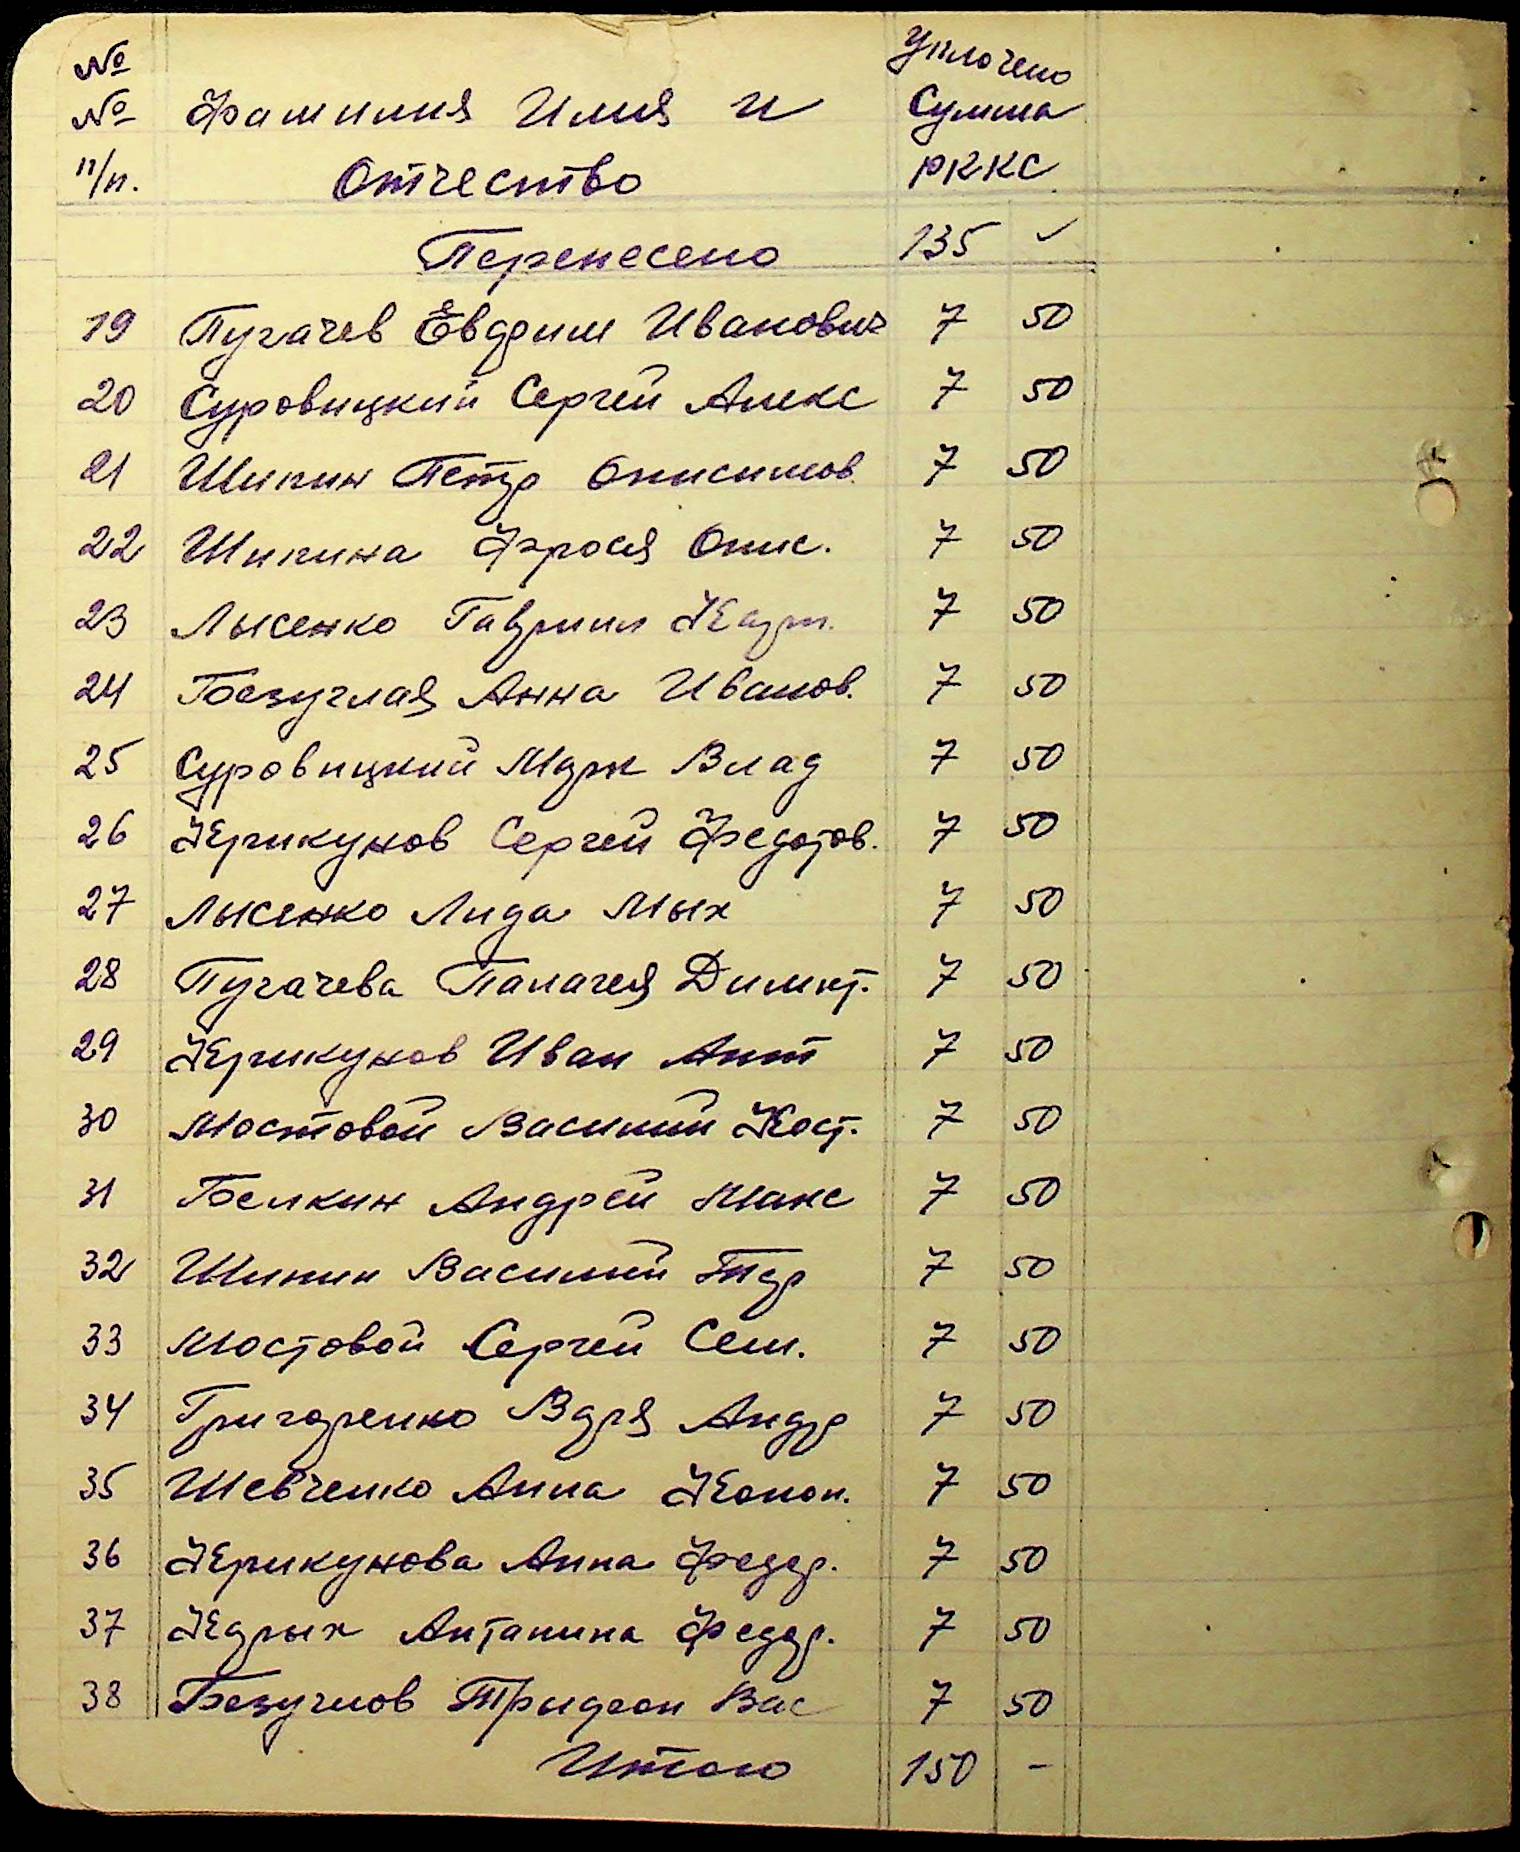 № Уплочено
№ Фамилия Имя и Сумма
п/п. Отчество РККС
Перенесено 135 ✓
19 Пугачев Евдфим Иванович 7 50
20 Суровицкий Сергей Алекс 7 50
21 Шипин Петр Онисимов. 7 50
22 Шипина Фрося Онис. 7 50
23 Лысенко Гавриил Карп. 7 50
24 Безуглая Анна Иванов. 7 50
25 Суровицкий Марк Влад 7 50
26 Крикунов Сергей Федотов. 7 50
27 Лысенко Лида Мых 7 50
28 Пугачева Палагея Димит. 7 50
29 Крикунов Иван Ант 7 50
30 Мостовой Василий Кост. 7 50
31 Белкин Андрей Макс 7 50
32 Шипин Василий 7 50
33 Мостовой Сергей Сем. 7 50
34 Григоренко Варя Андр 7 50
35 Шевченко Анна Конон. 7 50
36 Крикунова Анна Федор. 7 50
37 Кдрых Антанина Федор. 7 50
38 Безуглов Трифон Вас 7 50
Итого 150 -